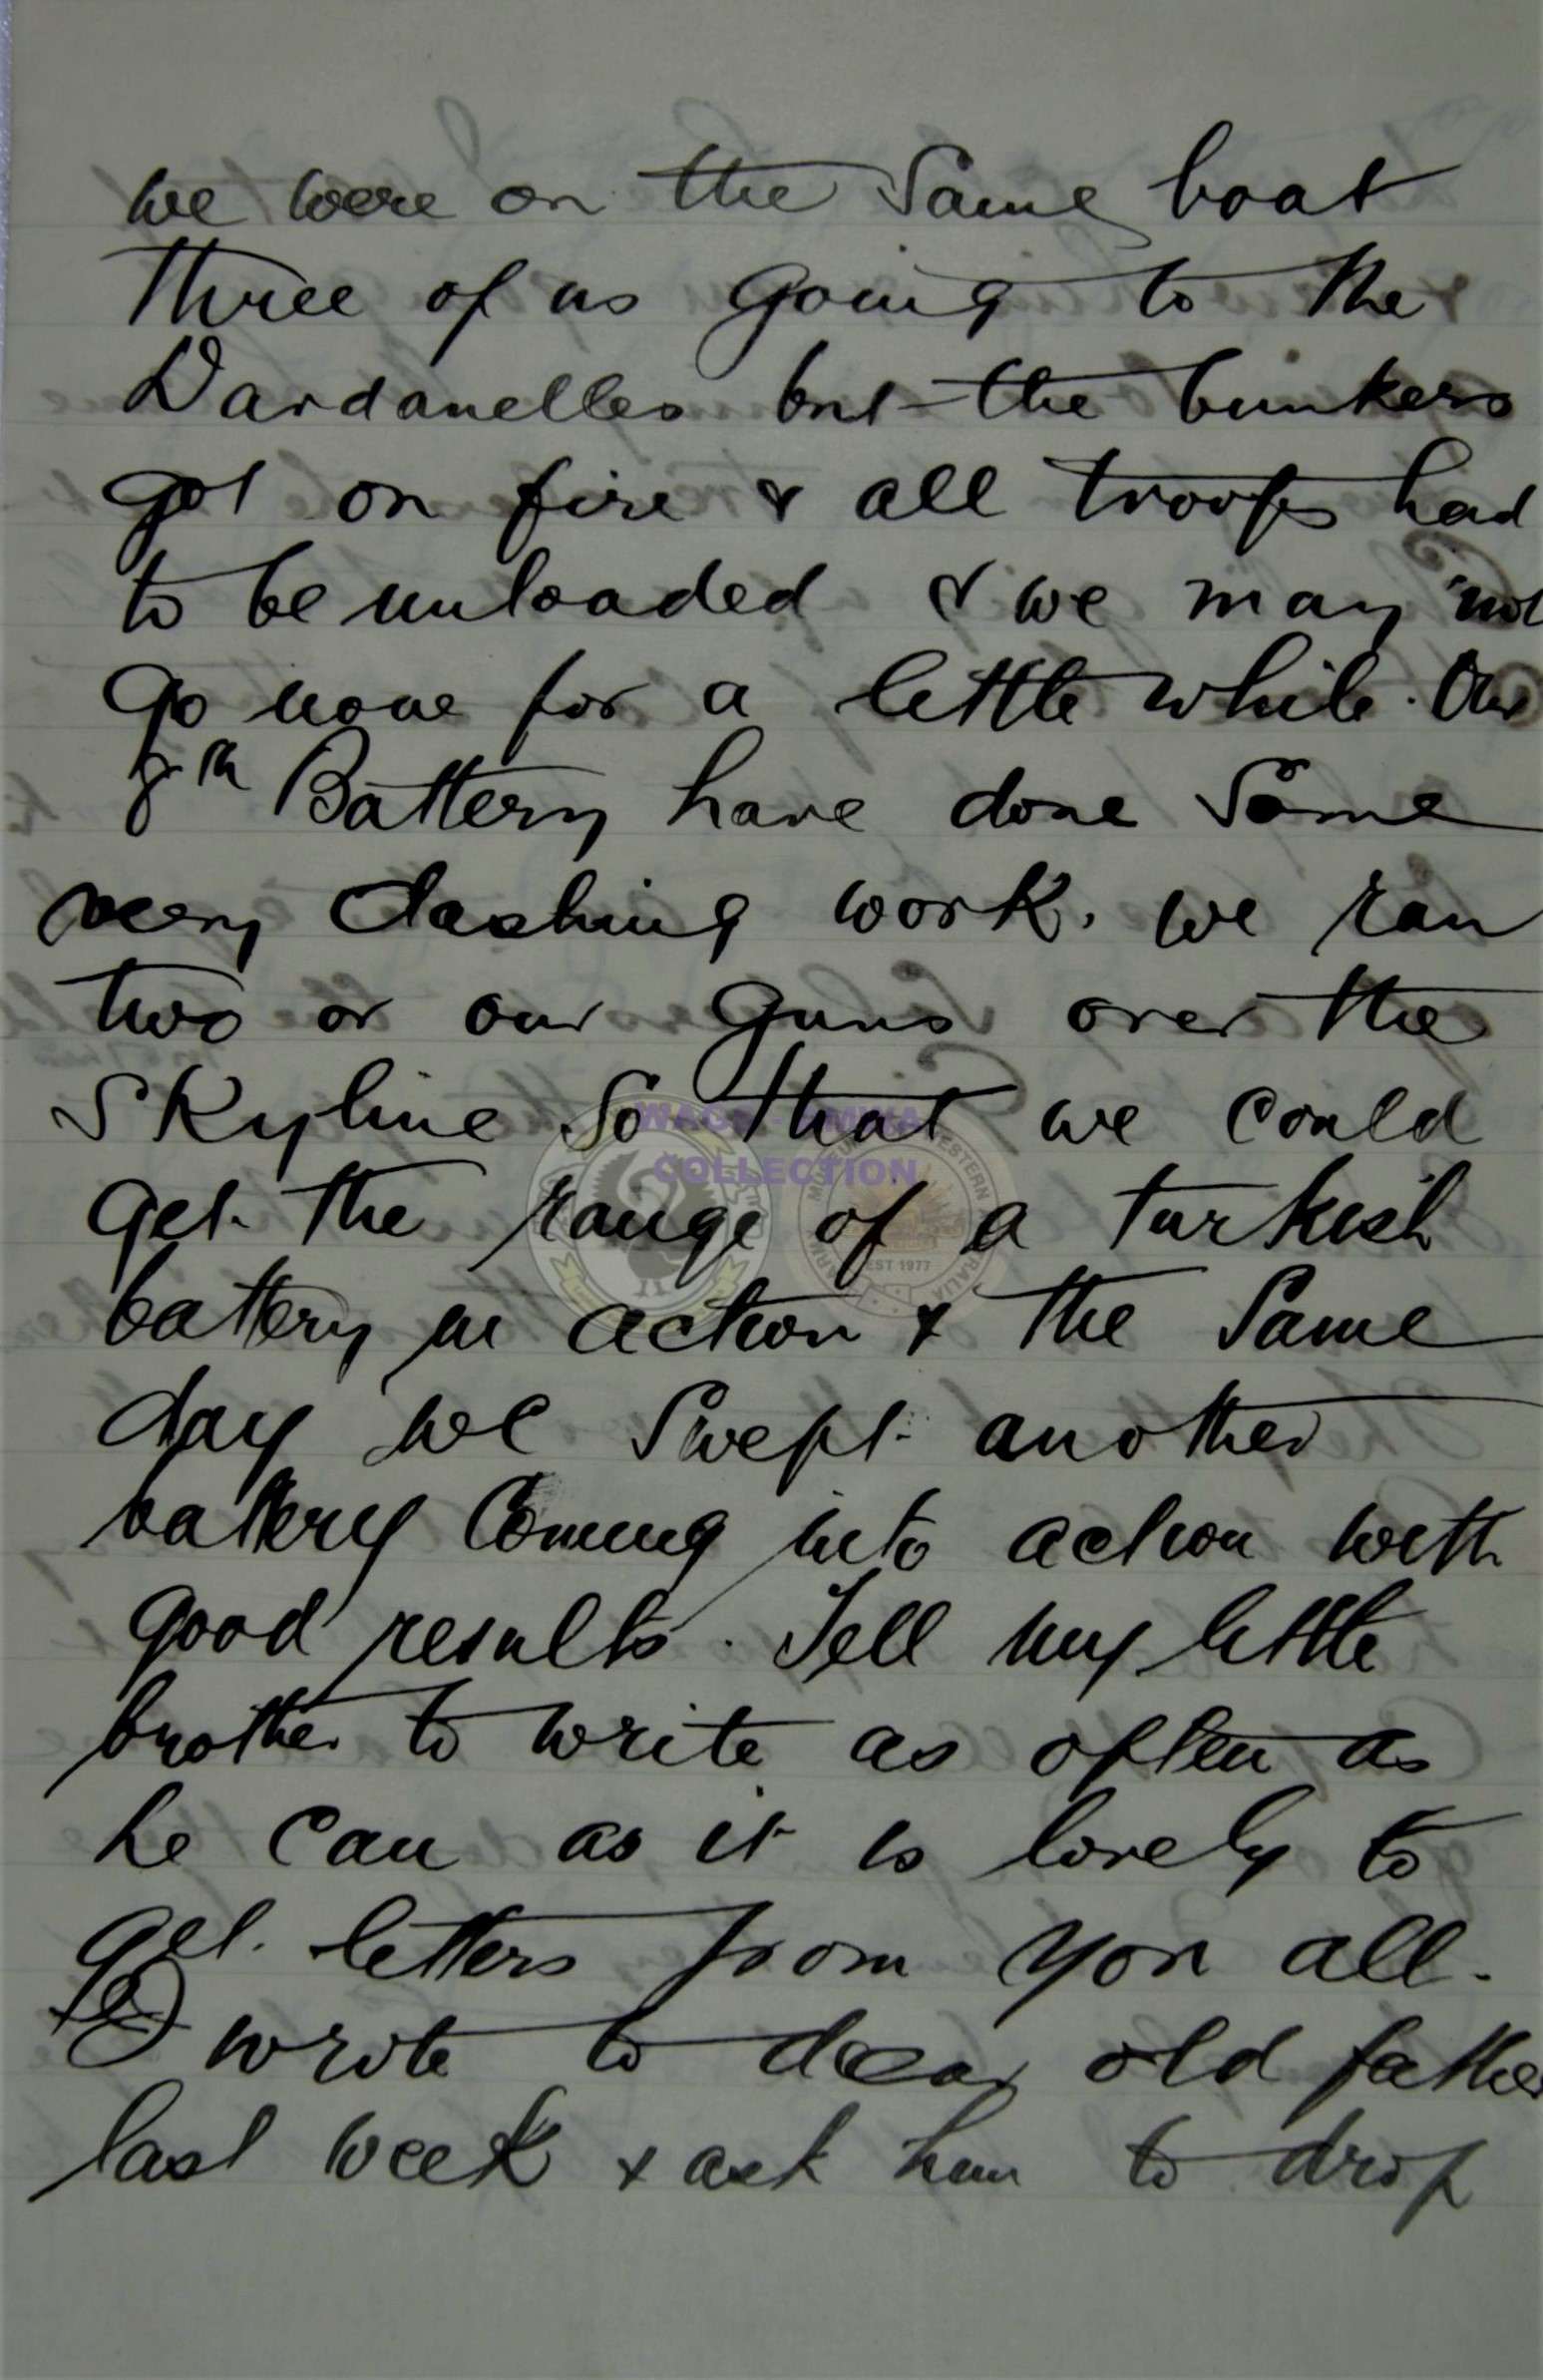 we were on the same boat
three of us going to the
Dardanelles but the bunkers
got on fire & all troops had
to be unloaded & we may not
go now for a little while. Our
8th Battery have done some
very dashing work. we ran
two or our guns over the
skyline so that we could
WAGS - AMWA
COLLECTION
EST 1977
get the range of a turkish
battery in action & the same
day we swept another
battery coming into action with
good results. Tell my little
brother to write as often as
he can as it is lovely to
get letters from you all.
I wrote to dear old father
last week & ask him to drop